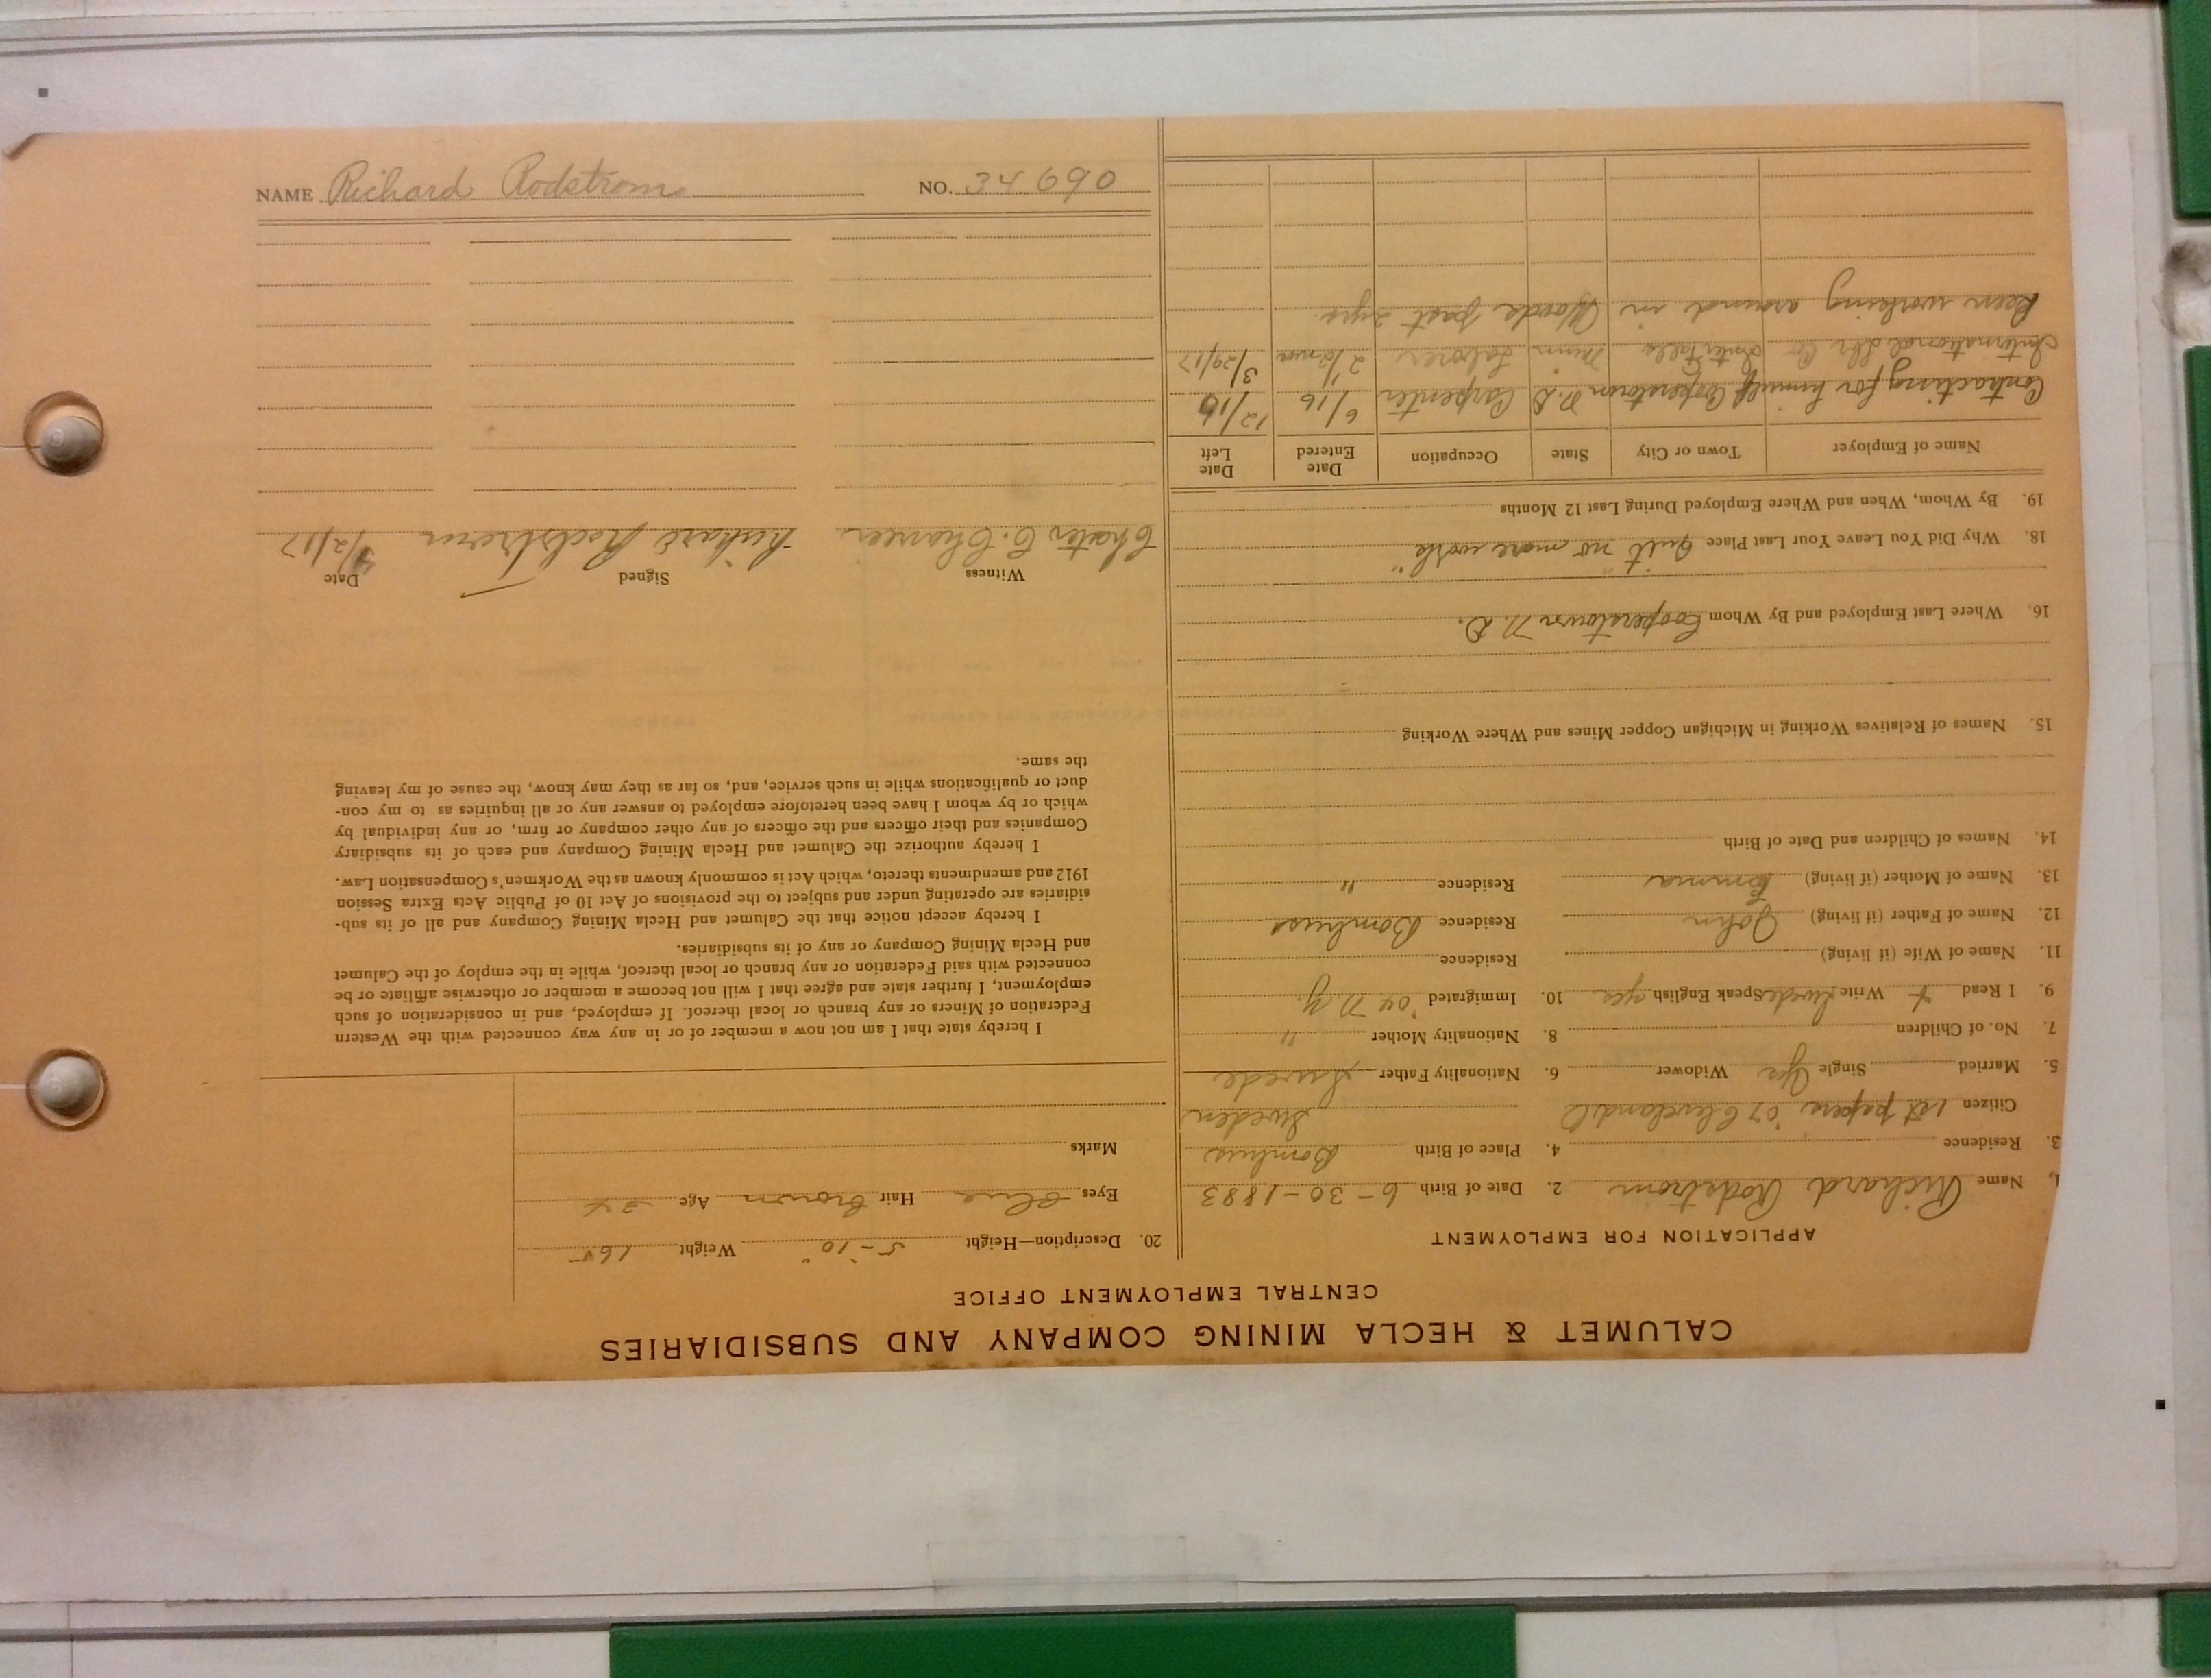 NAME Richard Rodstrom NO. 34690
CALUMET & HECLA MINING COMPANY AND SUBSIDIARIES
CENTRAL EMPLOYMENT OFFICE
APPLICATION FOR EMPLOYMENT
1. Name Richard Rodstrom 2. Date of Birth 6-30-1883
3. Residence 4. Place of Birth Bomhus
Citizen 1st papers '07 Cleveland O Sweden
5. Married Single Yes Widower 6. Nationality Father Swede
7. No. of Children 8. Nationality Mother "
9. I Read + Write Swede Speak English yes 10. Immigrated '04 N.Y.
11. Name of Wife (if living) Residence
12. Name of Father (if living) John Residence Bomhus
13. Name of Mother (if living) Emma Residence "
14. Names of Children and Date of Birth
15. Names of Relatives Working in Michigan Copper Mines and Where Working
16. Where Last Employed and By Whom Cooperstown N.D.
18. Why Did You Leave Your Last Place Quit "no more work"
19. By Whom, When and Where Employed During Last 12 Months
Name of Employer Town or City State Occupation Date Entered Date Left
Contracting for himself Cooperstown N.D Carpenter 6/16 12/16
International Lbr Co Inter Falls Minn Laborer 2 1/2 mos 3/29/17
Been working around in Woods past 2 yrs.
20. Description—Height 5-10" Weight 165
Eyes Blue Hair Brown Age 34
Marks
I hereby state that I am not now a member of or in any way connected with the Western
Federation of Miners or any branch or local thereof. If employed, and in consideration of such
employment, I further state and agree that I will not become a member or otherwise affiliate or be
connected with said Federation or any branch or local thereof, while in the employ of the Calumet
and Hecla Mining Company or any of its subsidiaries.
I hereby accept notice that the Calumet and Hecla Mining Company and all of its sub-
sidiaries are operating under and subject to the provisions of Act 10 of Public Acts Extra Session
1912 and amendments thereto, which Act is commonly known as the Workmen's Compensation Law.
I hereby authorize the Calumet and Hecla Mining Company and each of its subsidiary
Companies and their officers and the officers of any other company or firm, or any individual by
which or by whom I have been heretofore employed to answer any or all inquiries as to my con-
duct or qualifications while in such service, and, so far as they may know, the cause of my leaving
the same.
Witness Signed Date
C. Richard Rodstrom /2/17